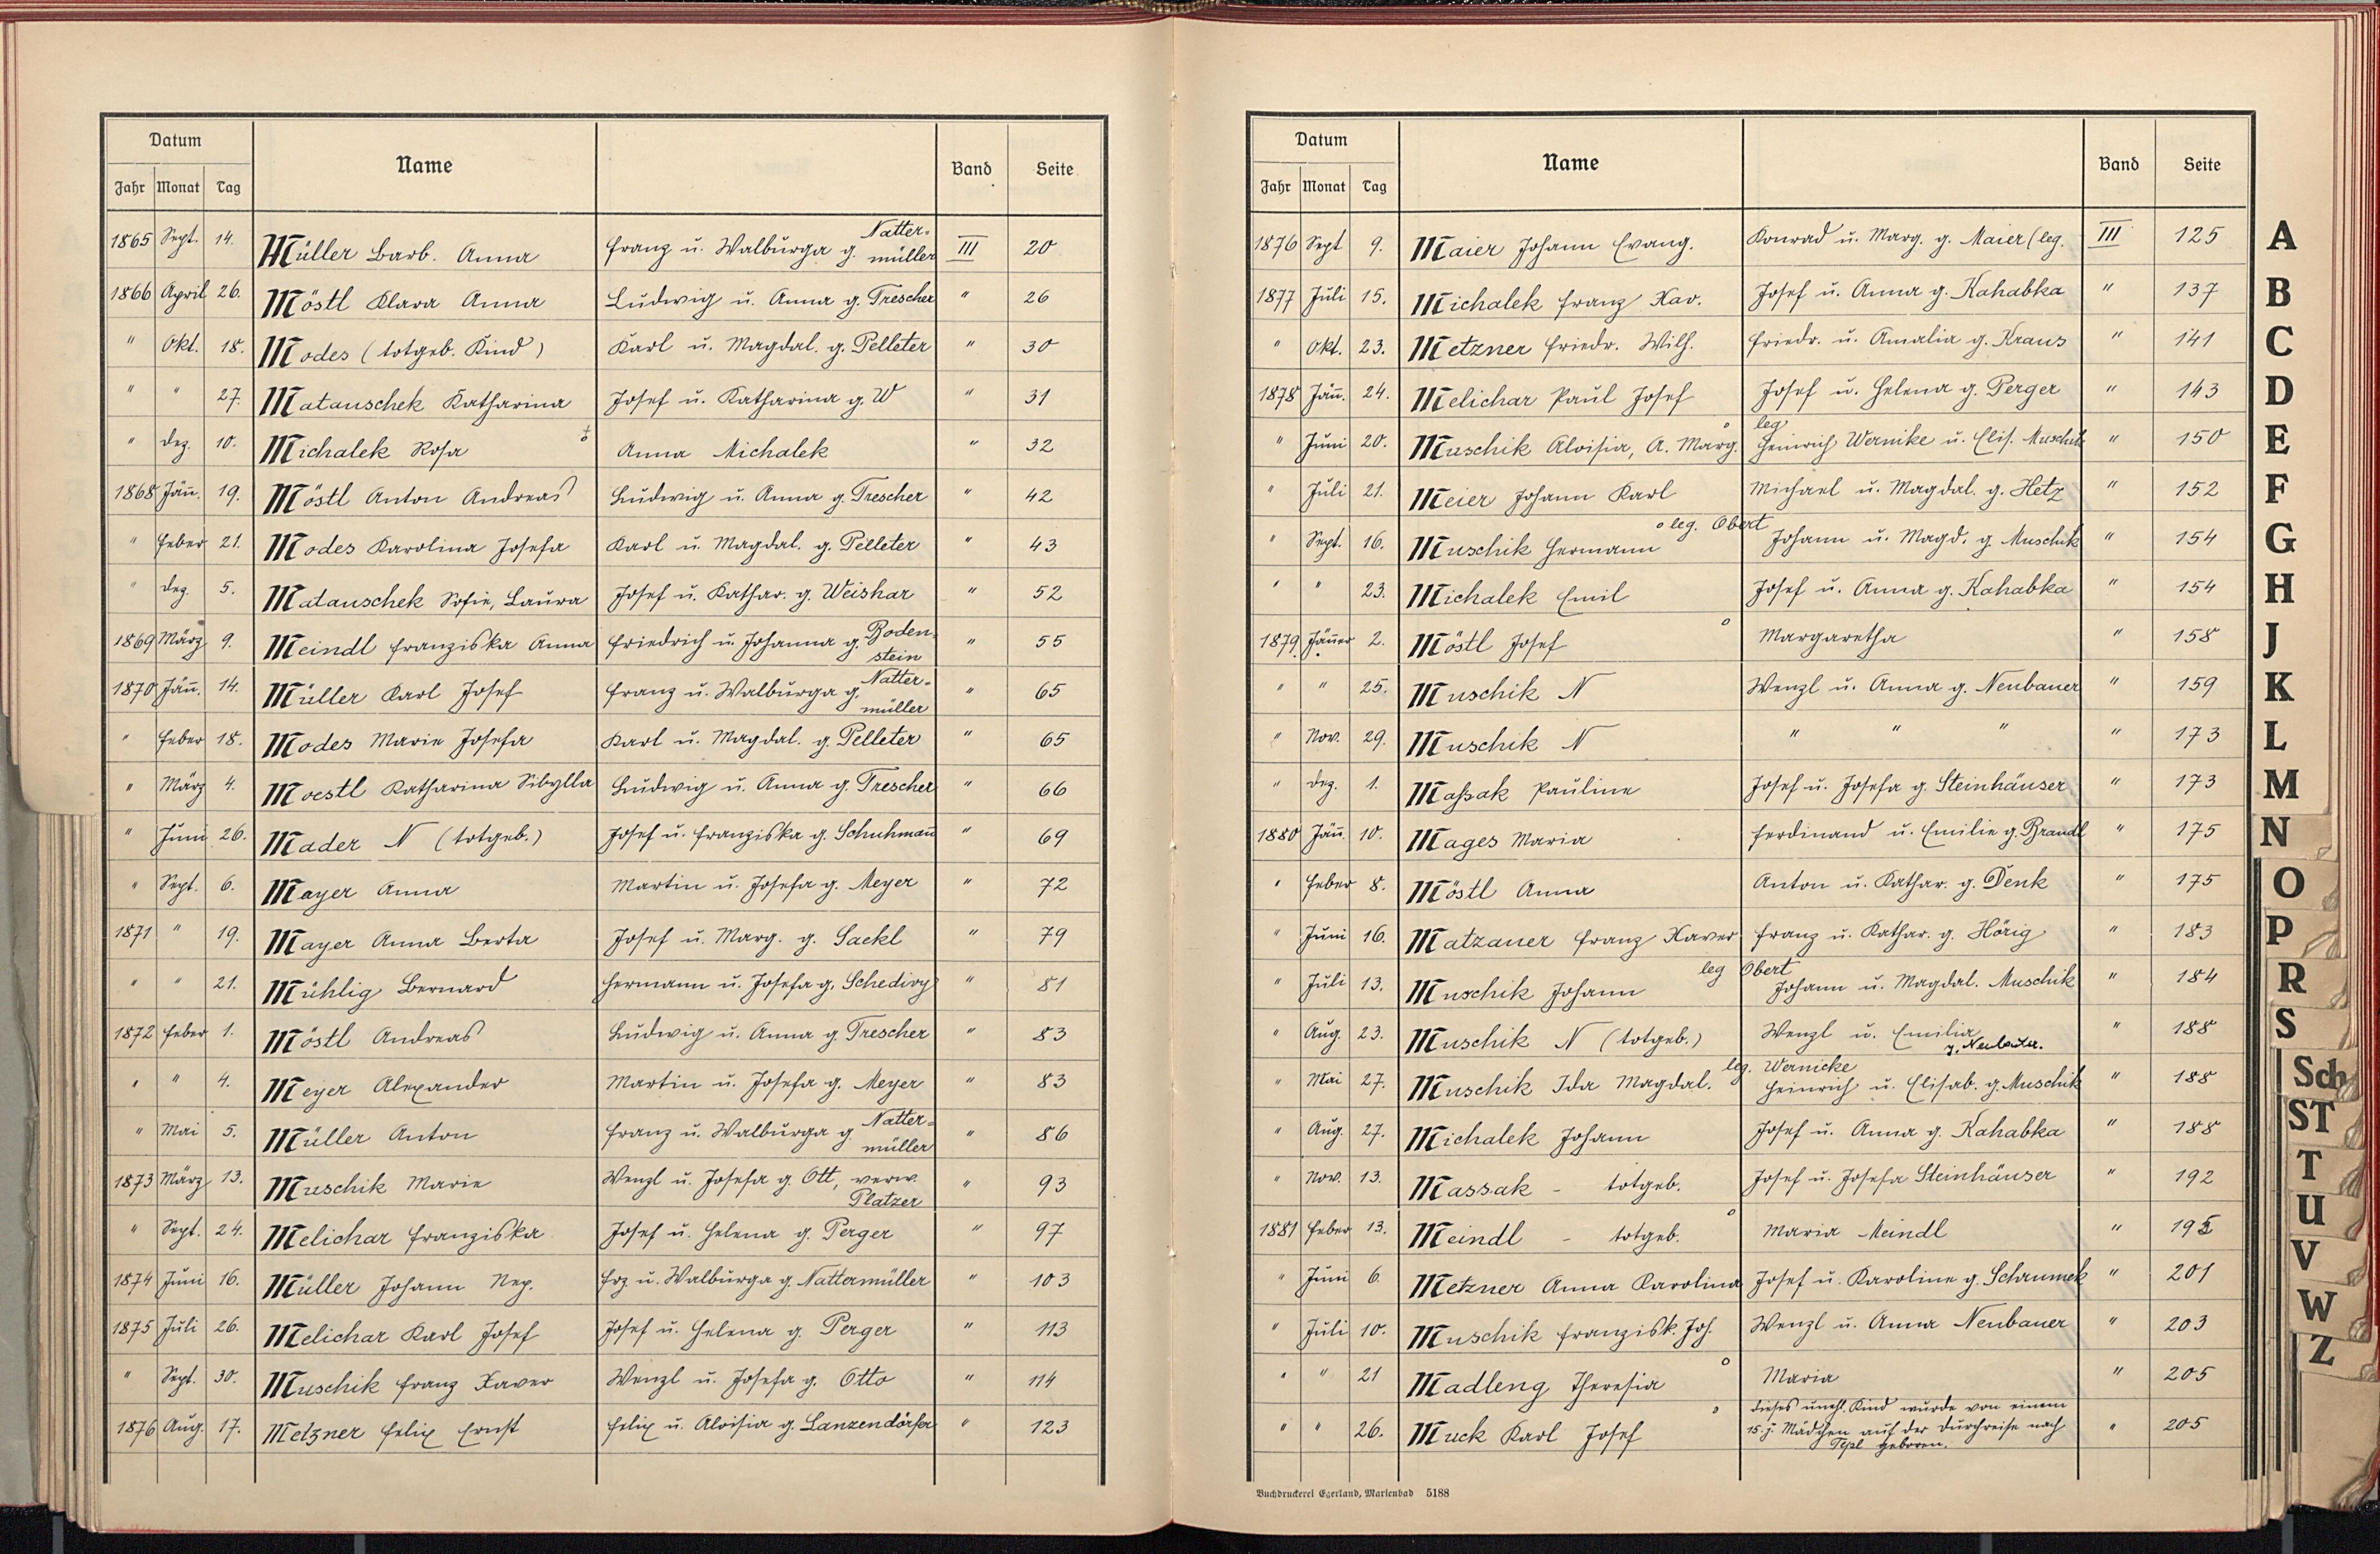 Datum Name Band Seite
Jahr Monat Tag
1865 Sept. 14. Müller Barb. Anna Franz u. Walburga g. Natter=müller III 20
1866 April 26. Möstl Klara Anna Ludwig u. Anna g. Trescher " 26
" Okt. 18. Modes (totgeb. Kind) Karl u. Magdal. g. Pelleter " 30
" " 27. Matauschek Katharina Josef u. Katharina g. W " 31
" Dez. 10. Michalek Rosa Anna Michalek " 32
1868 Jän. 19. Möstl Anton Andreas Ludwig u. Anna g. Trescher " 42
" Feber 21. Modes Karolina Josefa Karl u. Magdal. g. Pelleter " 43
" Dez. 5. Matauschek Sofie, Laura Josef u. Kathar. g. Weishar " 52
1869 März 9. Meindl Franziska Anna Friedrich u. Johanna g. Boden=stein " 55
1870 Jän. 14. Müller Karl Josef Franz u. Walburga g. Natter=müller " 65
" Feber 18. Modes Marie Josefa Karl u. Magdal. g. Pelleter " 65
" März 4. Moestl Katharina Sibylla Ludwig u. Anna g. Trescher " 66
" Juni 26. Mader N (totgeb.) Josef u. Franziska g. Schuhmañ " 69
" Sept. 6. Mayer Anna Martin u. Josefa g. Meyer " 72
1871 " 19. Mayer Anna Berta Josef u. Marg. g. Sackl " 79
" " 21. Mühlig Bernard Hermann u. Josefa g. Schedivy " 81
1872 Feber 1. Möstl Andreas Ludwig u. Anna g. Trescher " 83
" " 4. Meyer Alexander Martin u. Josefa g. Meyer " 83
" Mai 5. Müller Anton Franz u. Walburga g. Natter=müller " 86
1873 März 13. Muschik Marie Wenzl u. Josefa g. Ott, verw. Platzer " 93
" Sept. 24. Melichar Franziska Josef u. Helena g. Perger " 97
1874 Juni 16. Müller Johann Nep. Frz u. Walburga g. Nattermüller " 103
1875 Juli 26. Melichar Karl Josef Josef u. Helena g. Perger " 113
" Sept. 30. Muschik Franz Xaver Wenzl u. Josefa g. Otto " 114
1876 Aug. 17. Metzner Felix Ernst Felix u. Aloisia g. Lanzendörfer " 123
Datum Name Band Seite
Jahr Monat Tag
1876 Sept 9. Maier Johann Evang. Konrad u. Marg. g. Maier (leg. III 125
1877 Juli 15. Michalek Franz Xav. Josef u. Anna g. Kahabka " 137
" Okt. 23. Metzner Friedr. Wilh. Friedr. u. Amalia g. Kraus " 141
1878 Jän. 24. Melichar Paul Josef Josef u. Helena g. Perger " 143
" Juni 20. Muschik Aloisia, A. Marg. leg Heinrich Wernike u. Elis. Muschik " 150
" Juli 21. Meier Johann Karl Michael u. Magdal. g. Hetz " 152
" Sept. 16. Muschik Hermann o leg. Obert Johann u. Magd. g. Muschik " 154
" " 23. Michalek Emil Josef u. Anna g. Kahabka " 154
1879 Jäner 2. Möstl Josef o Margaretha " 158
" " 25. Muschik N Wenzl u. Anna g. Neubauer " 159
" Nov. 29. Muschik N " " " " 173
" Dez. 1. Maßak Pauline Josef u. Josefa g. Steinhäuser " 173
1880 Jän. 10. Mages Maria Ferdinand u. Emilie g. Brandl " 175
" Feber 8. Möstl Anna Anton u. Kathar. g. Denk " 175
" Juni 16. Matzauer Franz Xaver Franz u. Kathar. g. Hörig " 183
" Juli 13. Muschik Johann leg Obert Johann u. Magdal. Muschik " 184
" Aug. 23. Muschik N (totgeb.) Wenzl u. Emilia g. Neubauer. " 188
" Mai 27. Muschik Ida Magdal. leg. Wernicke Heinrich u. Elisab. g. Muschik " 188
" Aug. 27. Michalek Johann Josef u. Anna g. Kahabka " 188
" Nov. 13. Massak - totgeb. Josef u. Josefa Steinhäuser " 192
1881 Feber 13. Meindl - totgeb. o Maria Meindl " 195
" Juni 6. Metzner Anna Karolina Josef u. Karoline g. Schrumek " 201
" Juli 10. Muschik Franzisk. Jos. Wenzl u. Anna Neubauer " 203
" " 21 Madleng Theresia o Maria " 205
" " 26. Muck Karl Josef o dieses unehl. Kind wurde von einem " 205
15. j. Mädchen auf der Durchreise nach
Tepl geboren.
Buchdruckerei Egerland, Marienbad 5188
A
B
C
D
E
F
G
H
J
K
L
M
N
O
P
R
S
Sch
ST
T
U
V
W
Z